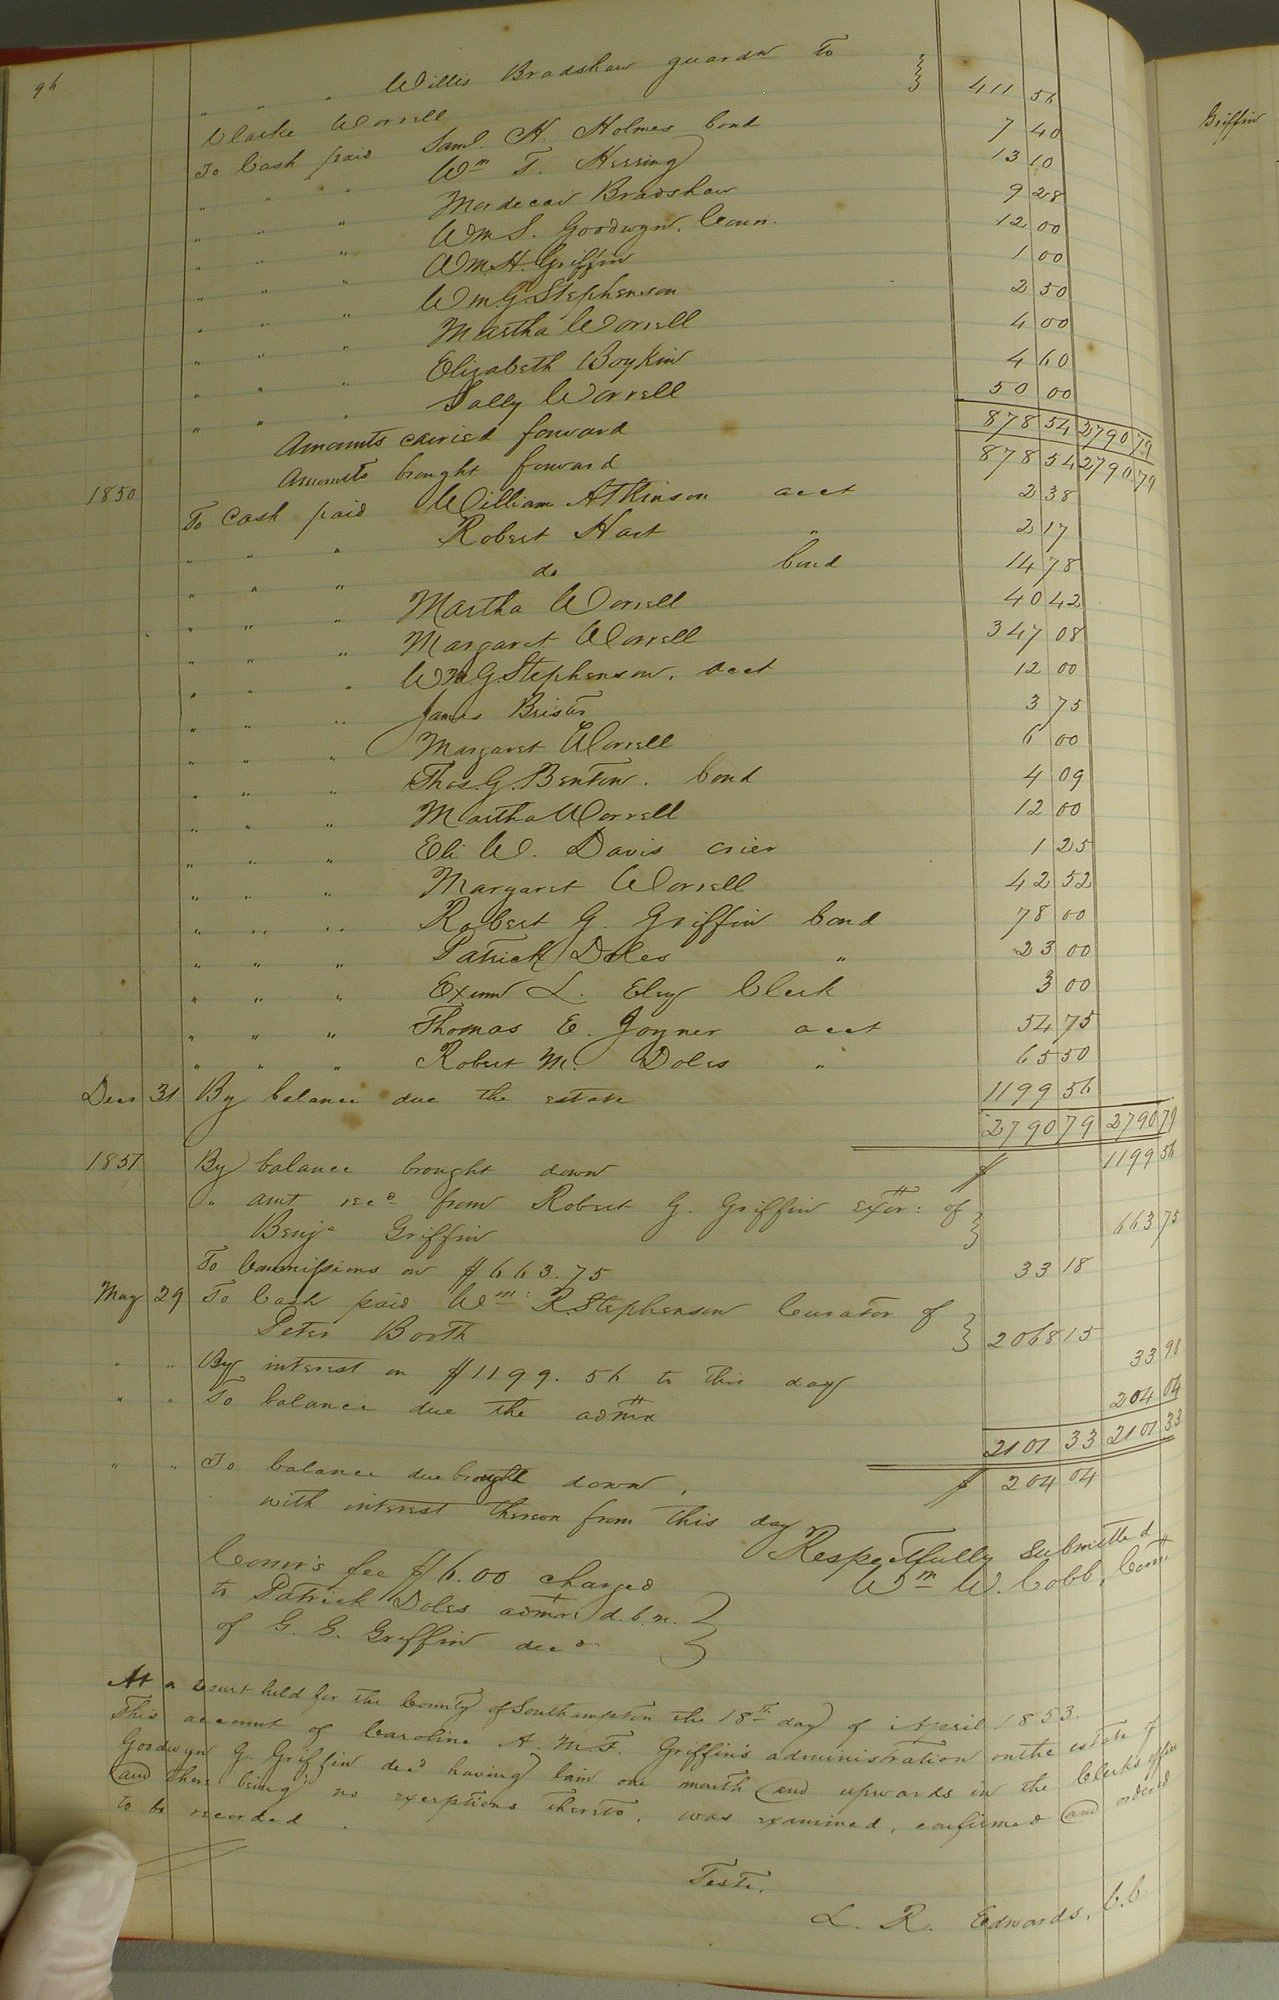 96
" " " Willis Bradshaw guardn to } 411 56
Clarke Worrell
To Cash paid Saml. H. Holmes bond 7 40
" " " Wm T. Herring 13 10
" " " Mordecai Bradshaw 9 28
" " " Wm S. Goodwyn, Comr. 12 00
" " " Wm H. Griffin 1 00
" " " Wm G Stephenson 2 50
" " " Martha Worrell 4 00
" " " Elizabeth Boykin 4 60
" " " Sally Worrell 50 00
Amounts carried forward 878 54 2790 79
Amounts brought forward 878 54 2790 79
1850 To cash paid William Atkinson acct 2 38
" " " Robert Hart " 2 17
" " " do bond 14 78
" " " Martha Worrell 40 42
" " " Margaret Worrell 347 08
" " " Wm G Stephenson, acct 12 00
" " " James Brister 3 75
" " " Margaret Worrell 6 00
" " " Thos. G. Benton. bond 4 09
" " " Martha Worrell 12 00
" " " Eli W. Davis crier 1 25
" " " Margaret Worrell 42 52
" " " Robert G. Griffin bond 78 00
" " " Patrick Doles " 23 00
" " " Exum L. Eley Clerk 3 00
" " " Thomas E. Joyner acct 54 75
" " " Robert M. Doles " 65 50
Decr 31 By balance due the estate 1199 56
2790 79 2790 79
1851 By balance brought down $ 1199 56
" amt recd from Robert G. Griffin exor: of }
Benja Griffin 663 75
To Commissions on $663.75 33 18
May 29 To Cash paid Wm: R. Stephenson Curator of }
Peter Booth 2068 15
" " By interest on $1199.56 to this day 33 98
" " To balance due the admx 204 04
2101 33 2101 33
" " To balance due brought down, $ 204 04
with interest thereon from this day
Respectfully submitted
Wm W. Cobb, Comr
Comr's fee $6.00 charged
to Patrick Doles admor d.b.n. }
of G. G. Griffin decd
At a Court held for the County of Southampton the 18th day of April 1853.
This account of Caroline A. M. F. Griffin's administration on the estate of
Goodwyn G. Griffin decd having lain one month and upwards in the Clerk's office
and there being no exceptions thereto, was examined, confirmed and ordered
to be recorded.
Teste,
L. R. Edwards, C.C.
Griffin